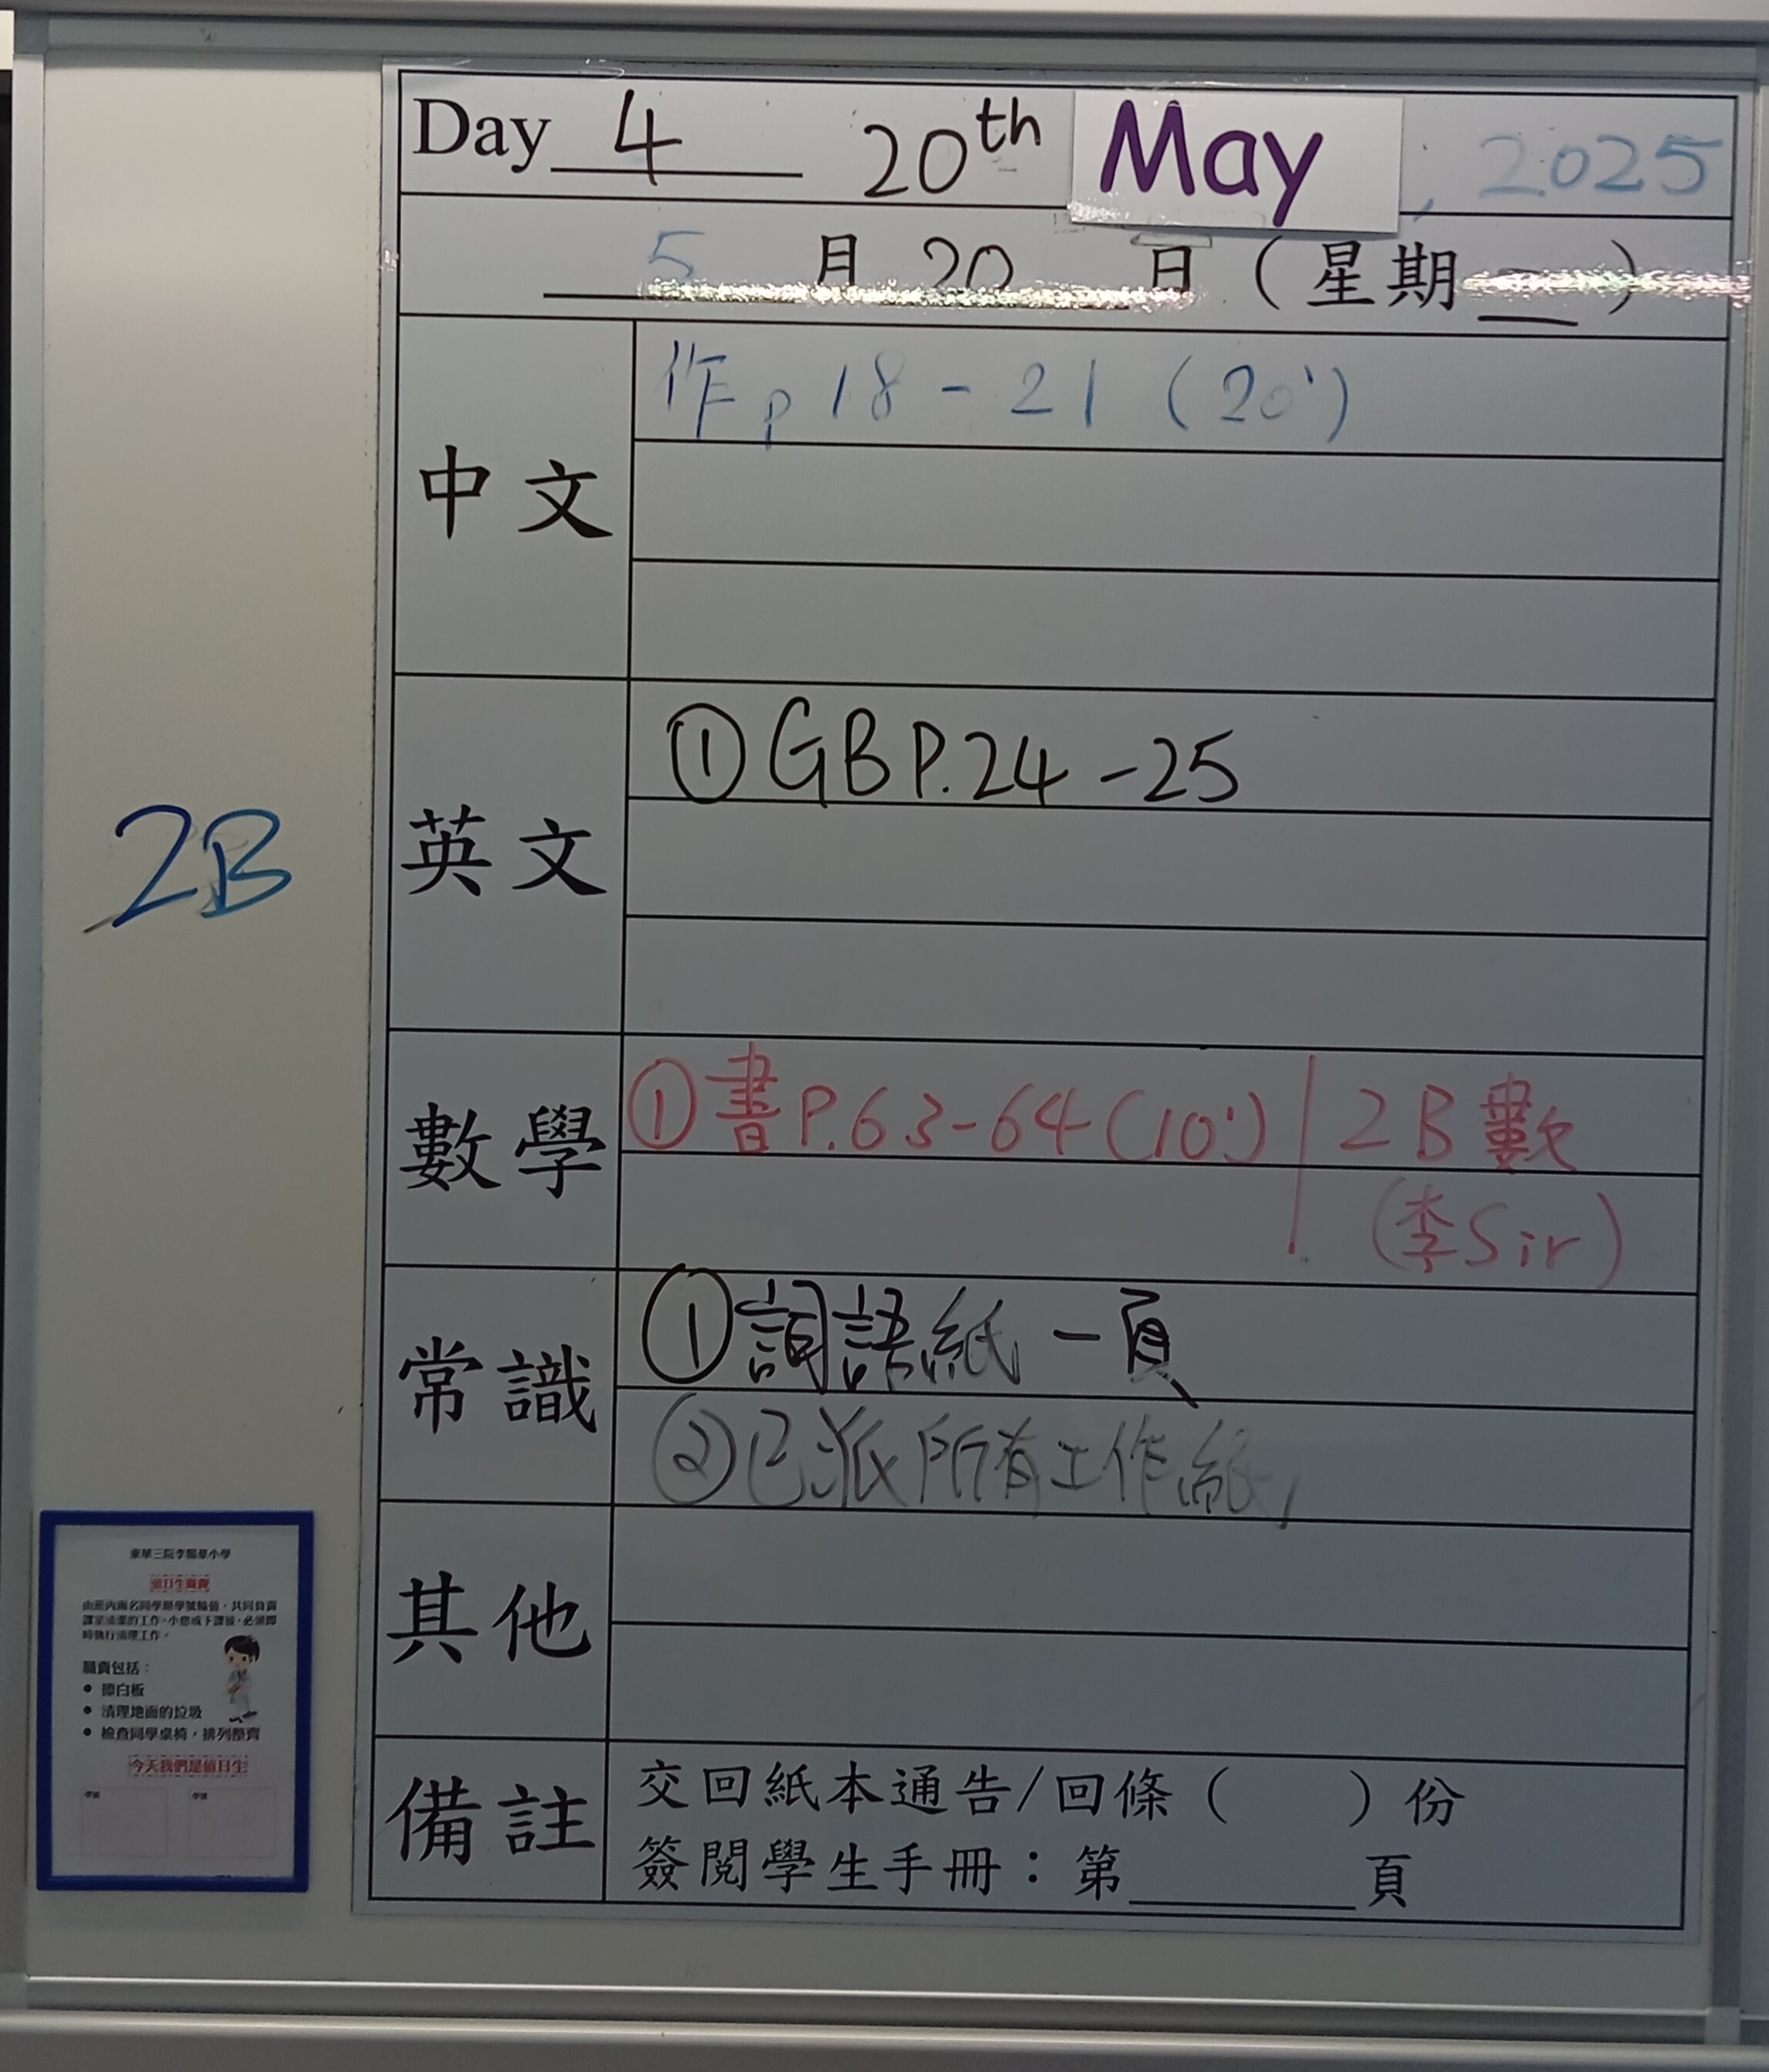 Day 4 20th May, 2025
5 月 20 日 (星期二)
中文
作p 18 - 21 (20')
英文
①GB P.24 -25
2B
數學
①書P.63-64(10') | 2B 數
(李Sir)
常識
①詞語紙一頁
②已派所有工作紙
其他
備註
交回紙本通告/回條( )份
簽閱學生手冊：第______頁
值日生職責
由班內兩名同學順學號輪值，共同負責
課室清潔的工作。小息或下課後，必須即
時執行清理工作。
職責包括：
● 擦白板
● 清理地面的垃圾
● 檢查同學桌椅，排列整齊
今天我們是值日生
學號 學號